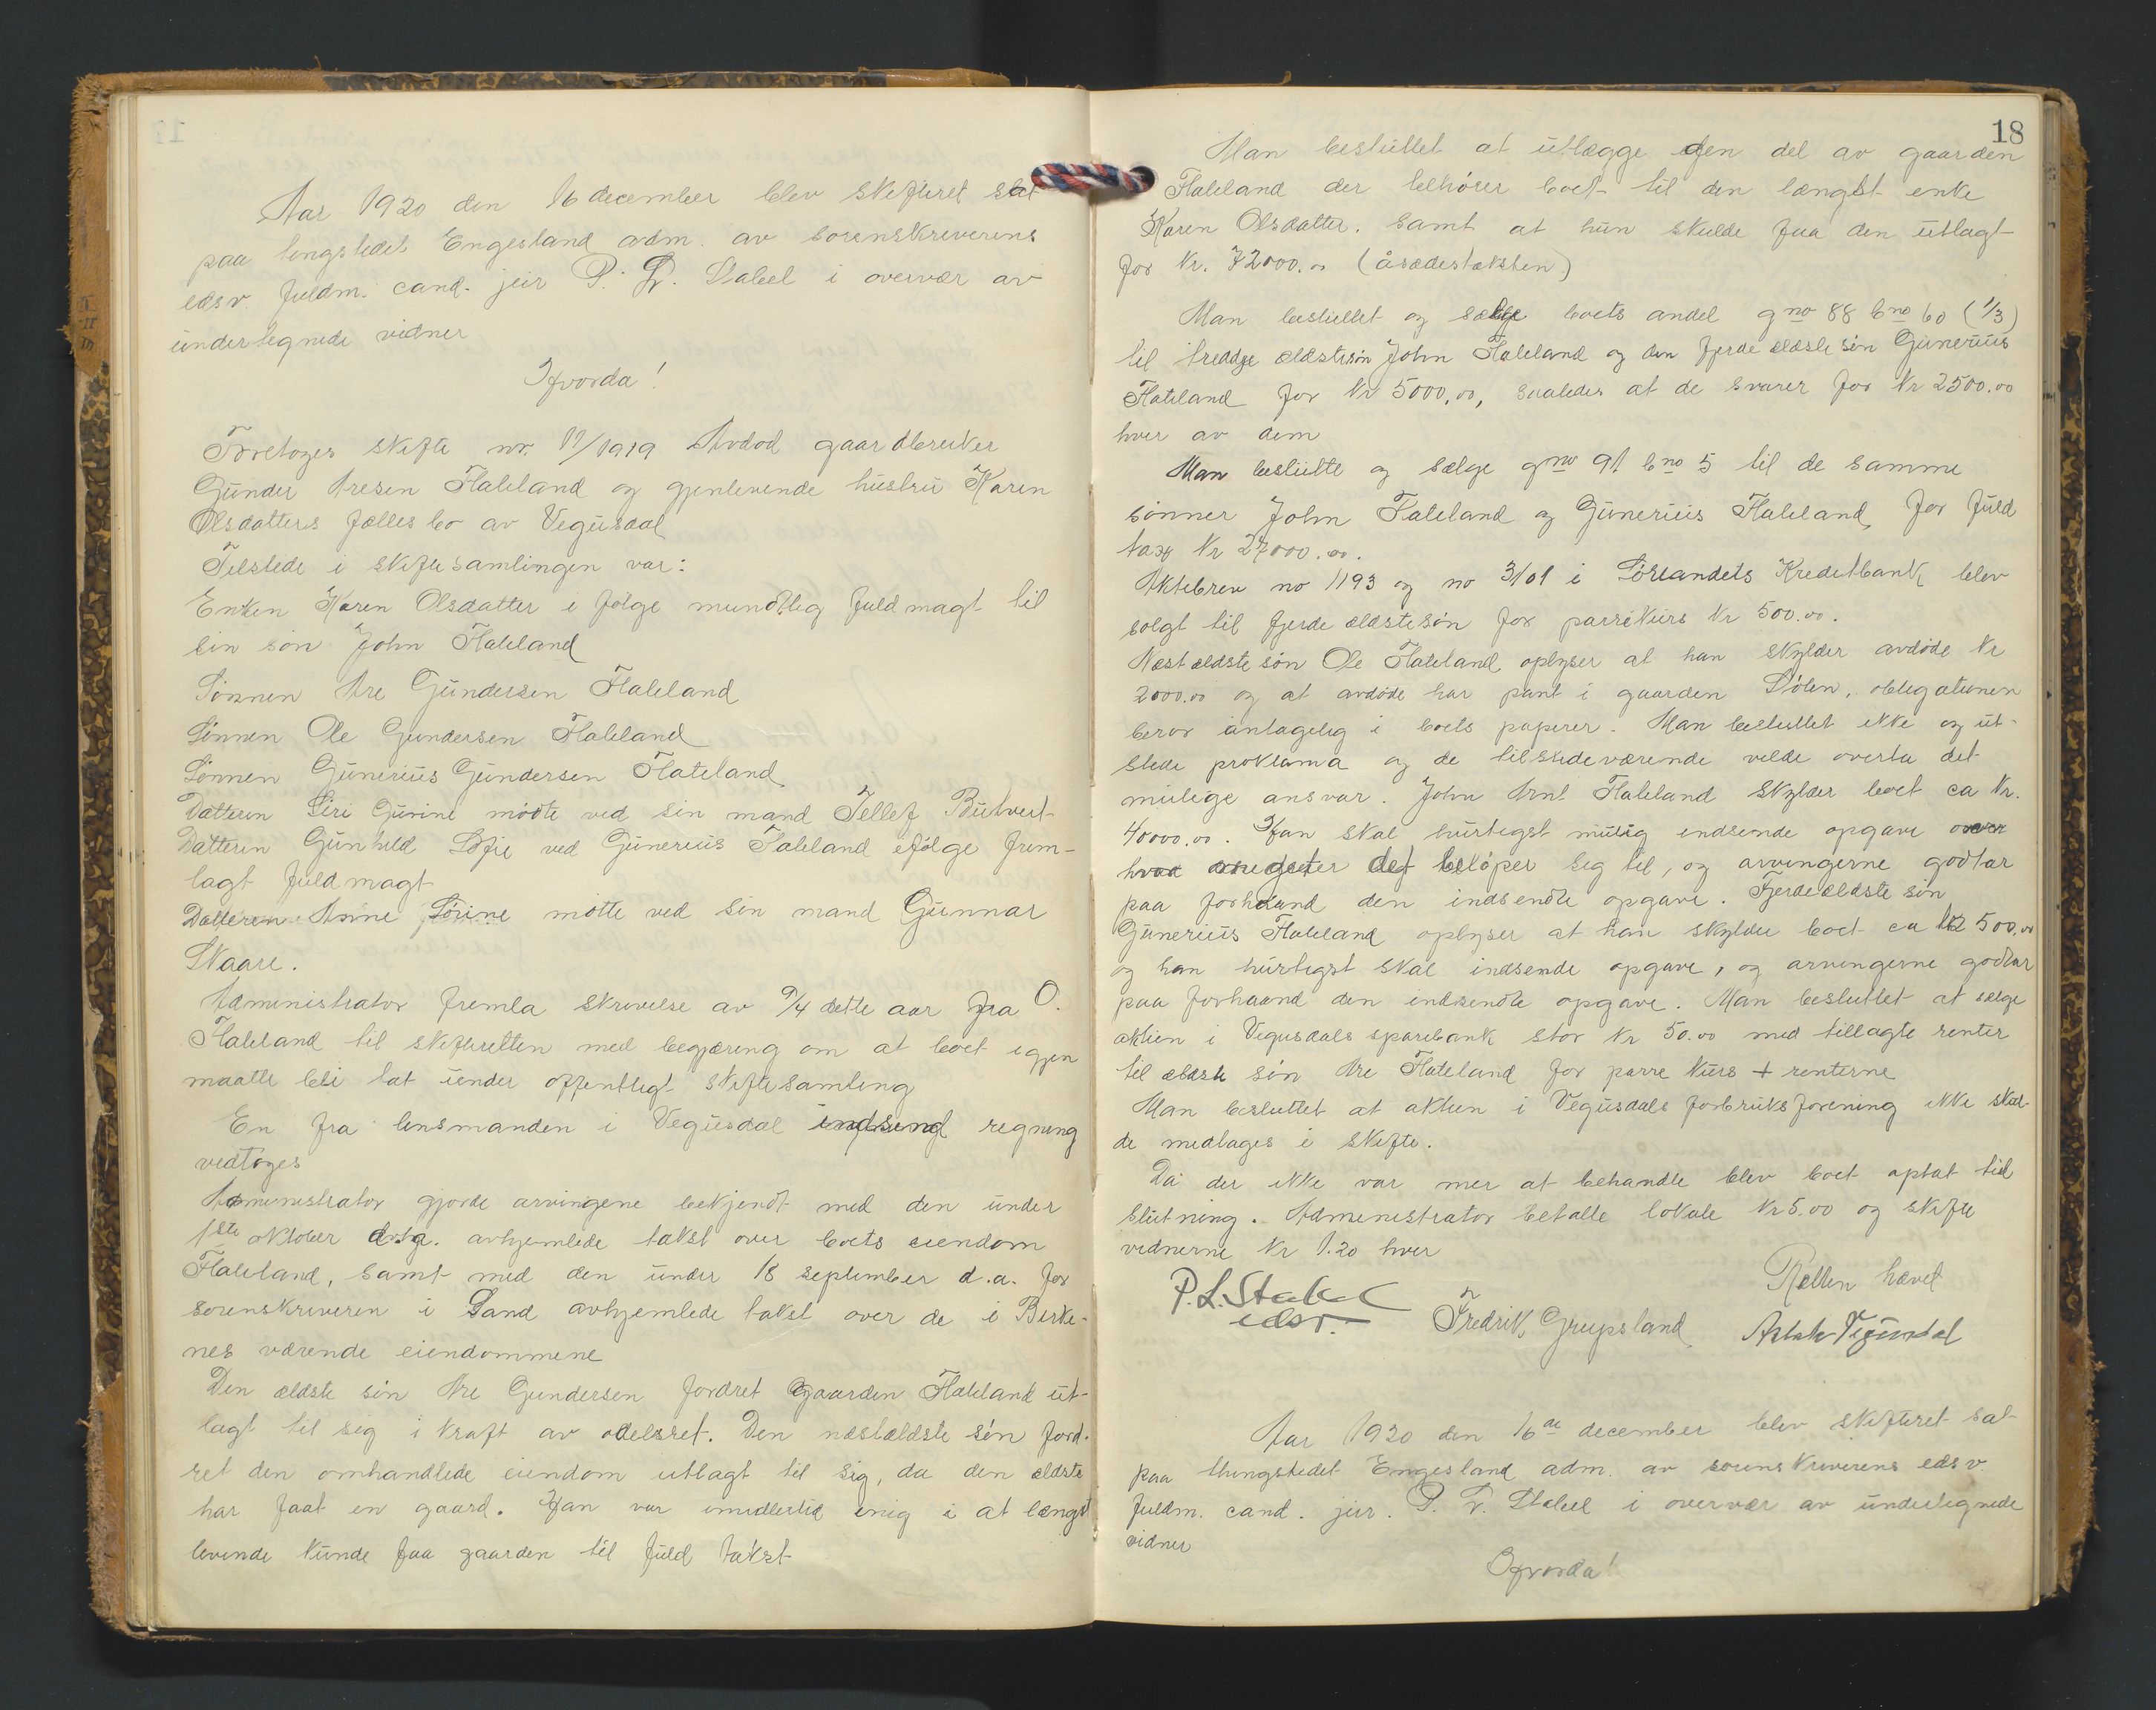 Aar 1920 den 16 december blev skifteret sat
paa tingstedet Engesland adm. av sorenskriverens
edsv. fuldm. cand. jur P. L. Stabel i overvær av
undertegnede vidner
Hvorda!
Foretoges skifte nr. 17/1919 Avdød gaardbruker
Gunder Aresen Flateland og gjenlevende hustru Karen
Olsdatters fællesbo av Vegusdal
Tilstede i skiftesamlingen var:
Enken Karen Olsdatter i følge mundtlig fuldmagt til
sin søn John Flateland
Sønnen Are Gundersen Flateland
Sønnen Ole Gundersen Flateland
Sønnen Gunerius Gundersen Flateland
Datteren Siri Gurine mødte ved sin mand Tellef
Datteren Gunhild Sofie ved Gunerius Flateland ifølge frem-
lagt fuldmagt
Datteren Anne Sørine møtte ved sin mand Gunnar
Skaare.
Administrator fremla skrivelse av 9/4 dette aar fra O.
Flateland til skifteretten med begjæring om at boet igjen
maatte bli tat under offentligt skiftesamling
En fra lensmanden i Vegusdal indsend regning
vedtoges
Administrator gjorde arvingene bekjendt med den under
1ste oktober d.a. avhjemlede takst over boets eiendom
Flateland, samt med den under 18 september d.a. for
sorenskriveren i Sand avhjemlede takst over de i Birke-
nes værende eiendommene
Den ældste søn Are Gundersen fordret gaarden Flateland ut-
lagt til sig i kraft av odelsret. Den næstældste søn ford-
ret den omhandlede eiendom utlagt til sig, da den ældste
har faat en gaard. Han var imidlertid enig i at længst
levende kunde faa gaarden til fuld takst
18
Man besluttet at utlægge den del av gaarden
Flateland der tilhører boet til den længst enke
Karen Olsdatter. samt at hun skulde faa den utlagt
for kr. 72000.00 (åsædestaksten)
Man besluttet og sælge boets andel gno 88 bno 60 (1/3)
til tredje ældstesøn John Flateland og den fjerde ældste søn Gunerius
Flateland for kr 5000,00, saaledes at de svarer for kr 2500.00
hver av dem
Man besluttte og sælge gno 91 bno 5 til de samme
sønner John Flateland og Gunerius Flateland for fuld
taxt kr 27000.00.
Aktiebrev no 1193 og no 3101 i Sørlandets Kreditbank blev
solgt til fjerde ældstesøn for parrikurs kr 500.00.
Næst ældste søn Ole Flateland oplyser at han skylder avdøde kr
2000.00 og at avdøde har pant i gaarden Sølen, obligationen
beror antagelig i boets papirer. Man besluttet ikke og ut-
stede proklama og de tilstedeværende vilde overta det
mulige ansvar. John Arnt Flateland skylder boet ca kr.
40000.00. Han skal hurtigst mulig indsende opgave over
hvad det beløper sig til, og arvingerne godtar
paa forhaand den indsendte opgave. Fjerdeældste søn
Gunerius Flateland oplyser at han skylder boet ca 12 500.00
og han hurtigst skal indsende opgave, og arvingerne godtar
paa forhaand den indsendte opgave. Man besluttet at sælge
aktien i Vegusdals sparebank stor kr 50.00 med tillagte renter
til ældste søn Are Flateland for parre kurs + renterne
Man besluttet at aktien i Vegusdals forbruksforening ikke skul-
de medtages i skifte.
Da der ikke var mer at behandle blev boet optat til
slutning. Administrator betalte lokale kr 5.00 og skifte
vidnerne kr 1.20 hver
Retten hævet
P.L. Stabel
edsv.
Fredrik Greipsland
Aar 1920 den 16de december blev skifteret sat
paa thingstedet Engesland adm. av sorenskriverens edsv.
fuldm. cand. jur. P. L. Stabel i overvær av undertegnede
vidner
Hvorda!